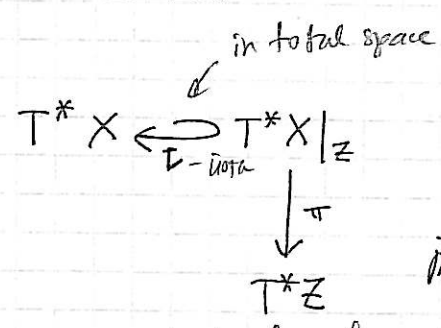 in total space
T* X ↩ T*X|_Z
ι - йота
π
T*Z